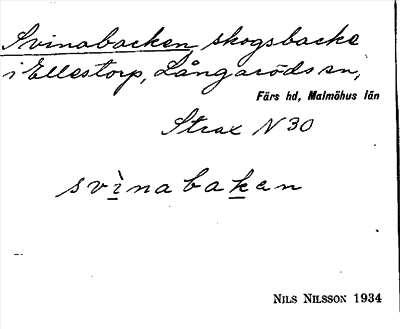 Svinabacken, skogsbacke
i Ellestorp, Långaröds sn,
Färs hd, Malmöhus län
Strax N 30
svìnabakan
Nils Nilsson 1934